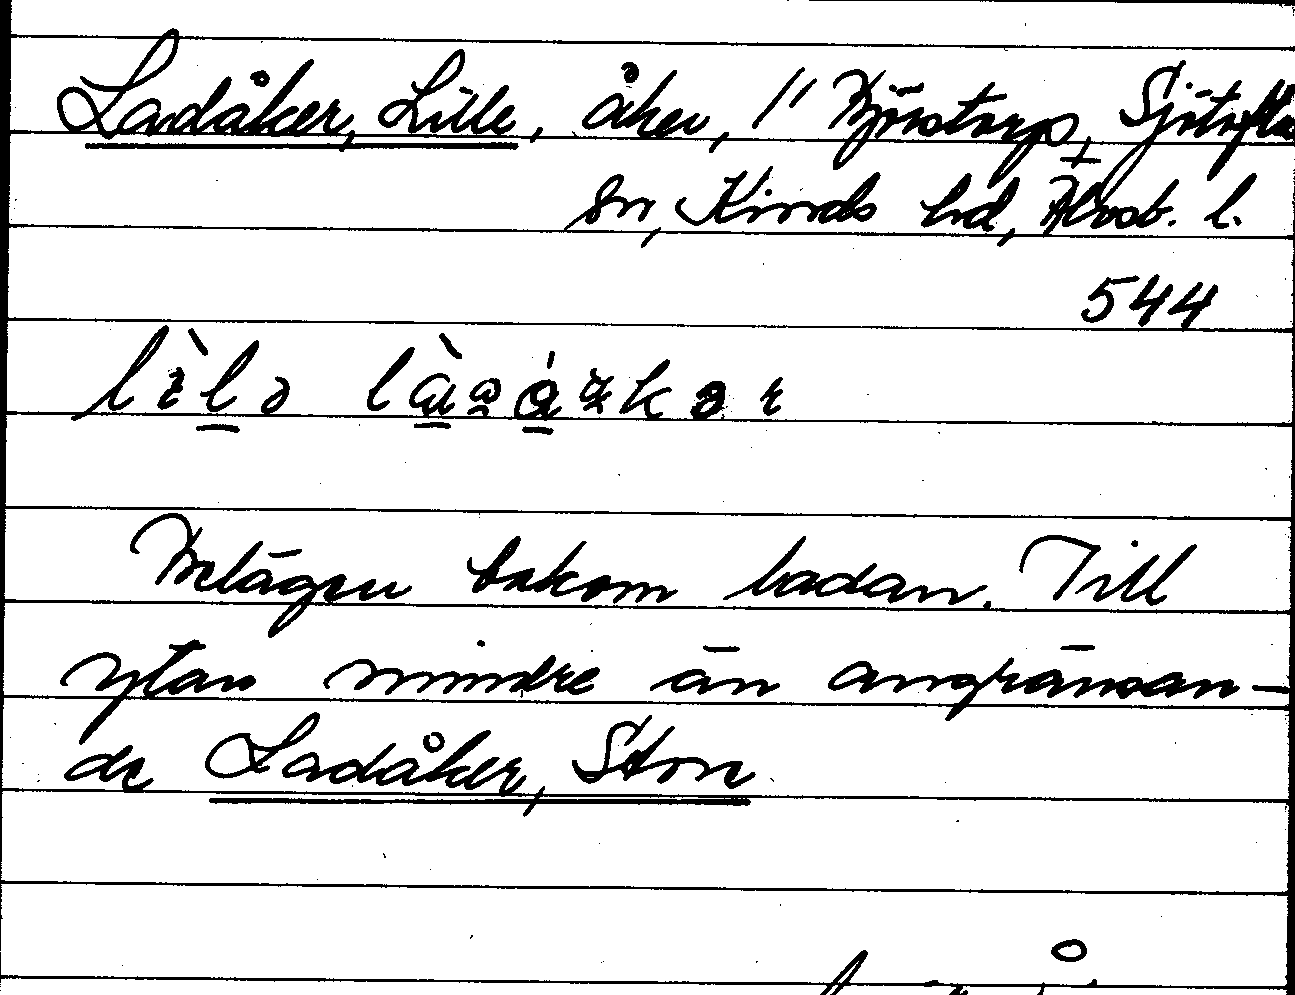 Ladåker, Lille, åker, 1/1 Björstorp, Sjötofta
sn, Kinds hd, Älvsb. l.
544
Belägen bakom ladan. Till
ytan mindre än angränsan-
de Ladåker, Stora